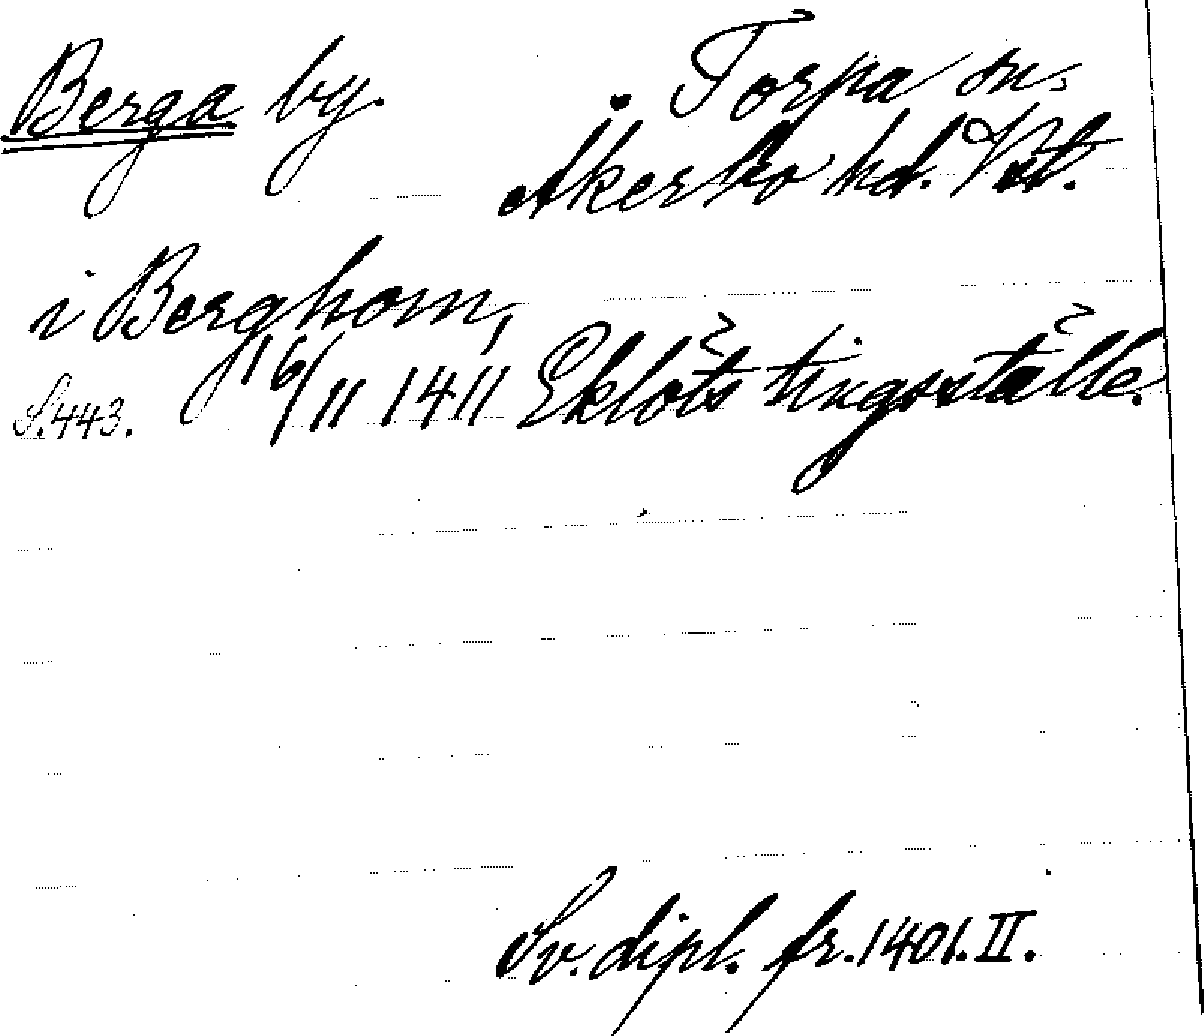 Berga by. Torpa sn.
Åkerbo hd. Vstl.
i Berghom,
S. 443. 16/11 1411 Eklöts tingställe.
Sv. dipl. fr. 1401. II.